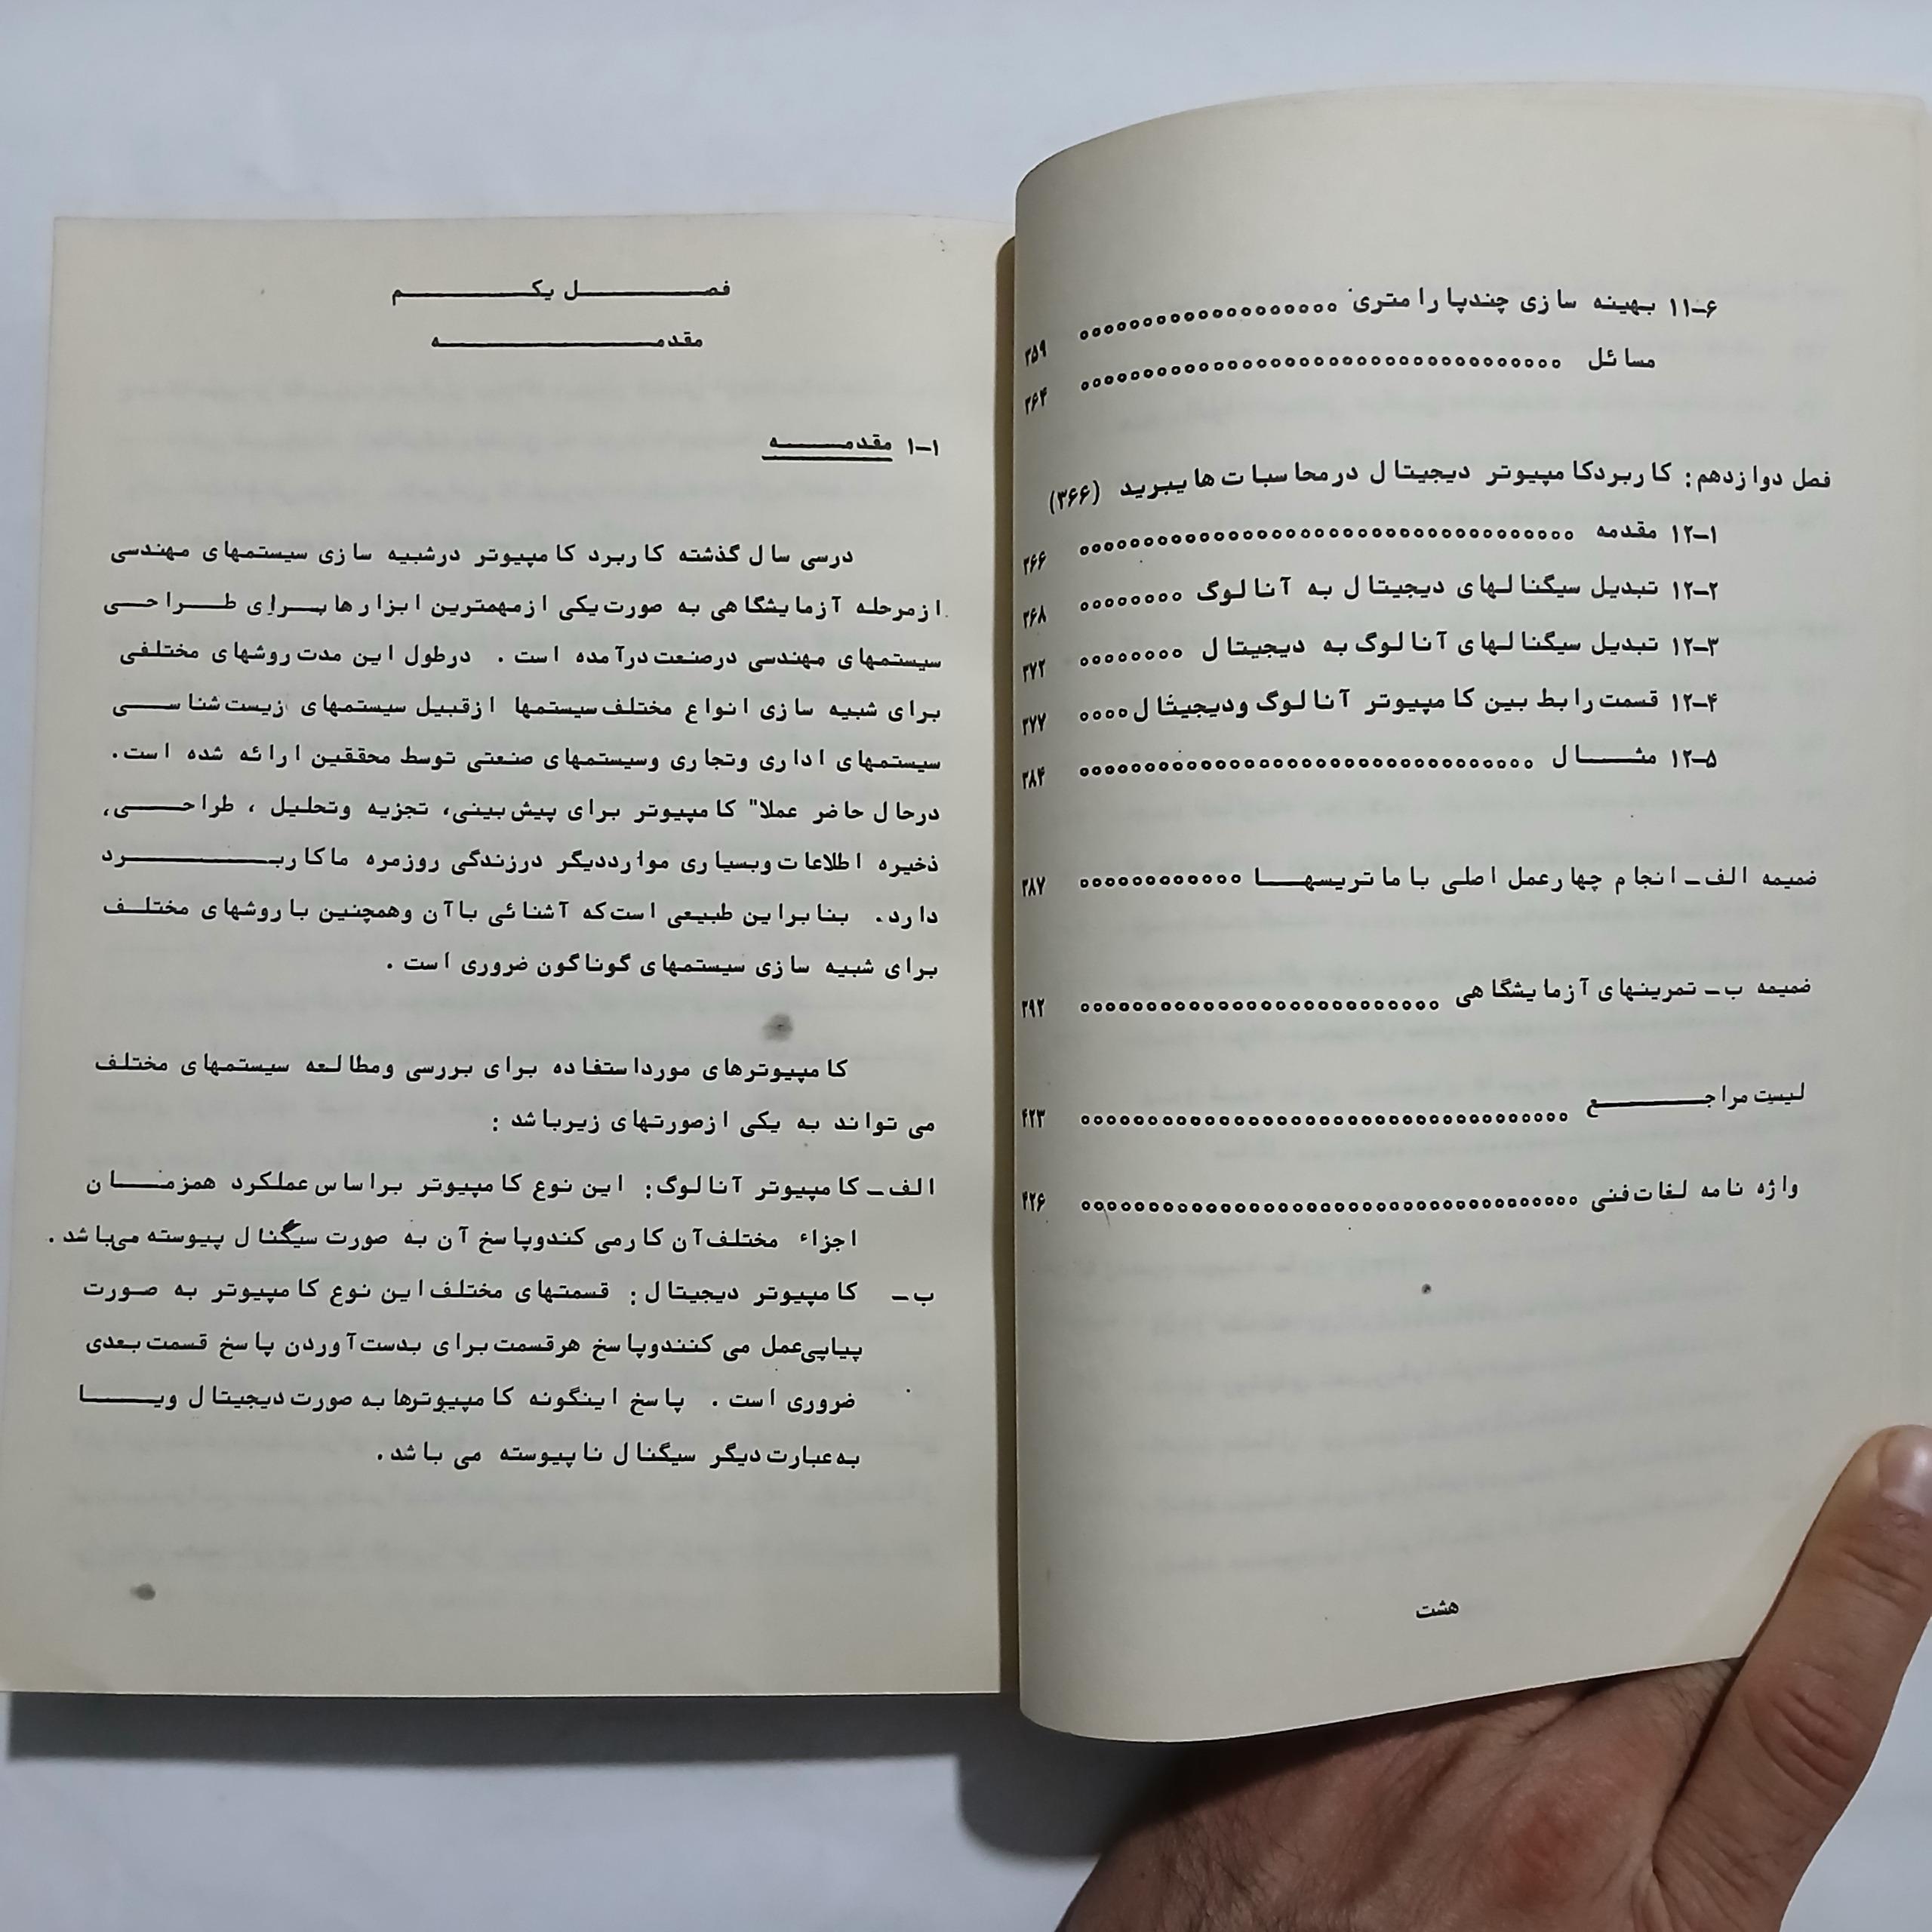 ۱۱-۶ بهینه سازی چندپارامتری ۳۵۹
مسائل ۳۶۴
فصل دوازدهم: کاربردکامپیوتر دیجیتال درمحاسبات هایبرید (۳۶۶)
۱۲-۱ مقدمه ۳۶۶
۱۲-۲ تبدیل سیگنالهای دیجیتال به آنالوگ ۳۶۸
۱۲-۳ تبدیل سیگنالهای آنالوگ به دیجیتال ۳۷۲
۱۲-۴ قسمت رابط بین کامپیوتر آنالوگ ودیجیتال ۳۷۷
۱۲-۵ مثال ۳۸۴
ضمیمه الف - انجام چهارعمل اصلی با ماتریسها ۳۸۷
ضمیمه ب - تمرینهای آزمایشگاهی ۳۹۲
لیست مراجع ۴۲۳
واژه نامه لغات فنی ۴۲۶
هشت
فصل یکم
مقدمه
۱-۱ مقدمه
درسی سال گذشته کاربرد کامپیوتر درشبیه سازی سیستمهای مهندسی
ازمرحله آزمایشگاهی به صورت یکی ازمهمترین ابزارها برای طراحی
سیستمهای مهندسی درصنعت درآمده است . درطول این مدت روشهای مختلفی
برای شبیه سازی انواع مختلف سیستمها ازقبیل سیستمهای زیست شناسی
سیستمهای اداری وتجاری وسیستمهای صنعتی توسط محققین ارائه شده است.
درحال حاضر عملا" کامپیوتر برای پیش بینی، تجزیه وتحلیل ، طراحی،
ذخیره اطلاعات وبسیاری مواردیگر درزندگی روزمره ماکاربرد
دارد. بنابراین طبیعی است که آشنائی باآن وهمچنین با روشهای مختلف
برای شبیه سازی سیستمهای گوناگون ضروری است .
کامپیوترهای مورداستفاده برای بررسی ومطالعه سیستمهای مختلف
می تواند به یکی ازصورتهای زیرباشد :
الف - کامپیوتر آنالوگ: این نوع کامپیوتر براساس عملکرد همزمان
اجزاء مختلف آن کارمی کندوپاسخ آن به صورت سیگنال پیوسته می‌باشد .
ب - کامپیوتر دیجیتال: قسمتهای مختلف این نوع کامپیوتر به صورت
پیاپی عمل می کنندوپاسخ هرقسمت برای بدست آوردن پاسخ قسمت بعدی
ضروری است . پاسخ اینگونه کامپیوترها به صورت دیجیتال ویا
به عبارت دیگر سیگنال ناپیوسته می باشد .